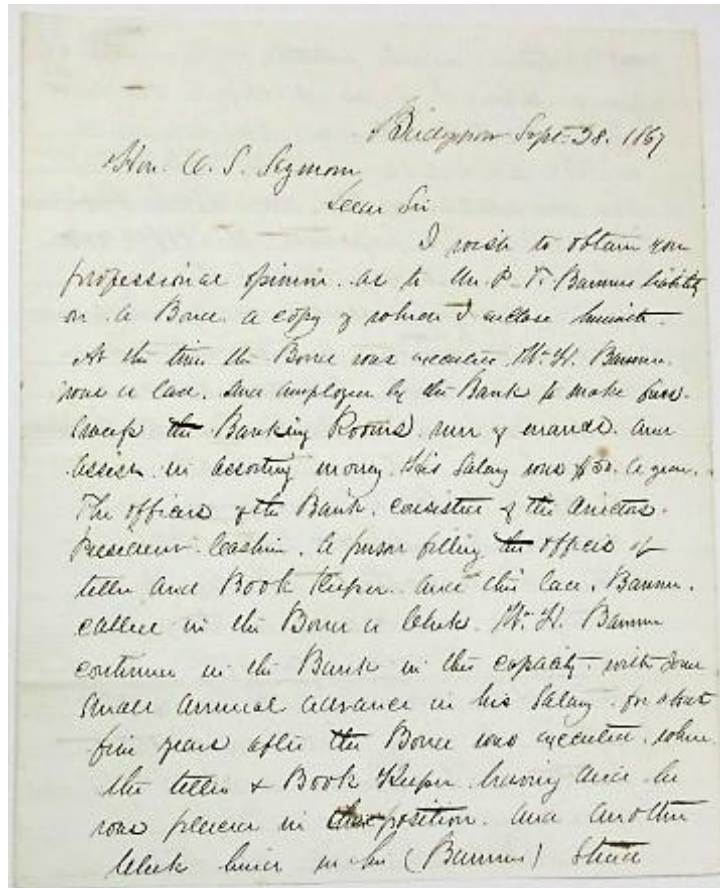 Bridgeport Sept. 28. 1867
Hon. O. S. Seymour
Dear Sir
I wish to obtain your
professional opinion. as to Mr. P. T. Barnums liability
on a Bond. a copy of which I enclose herewith.
At the time the Bond was executed Wm. H. Barnum.
was a lad. and employed by the Bank to make fires.
sweep the Banking Rooms. run of errands. and
assist in assorting money. His Salary was $50. a year.
The officers of the Bank. consisted of the directors.
President. Cashier. A person filling the offices of
teller and Book Keeper. and this lad. Barnum.
called in the Bond a Clerk. W. H. Barnum
continued in the Bank in this capacity. with some
small annual advance in his Salary. for about
five years after the Bond was executed. when
the teller & Book Keeper. having died he
was placed in position. and another
Clerk hired in his (Barnums) Stead